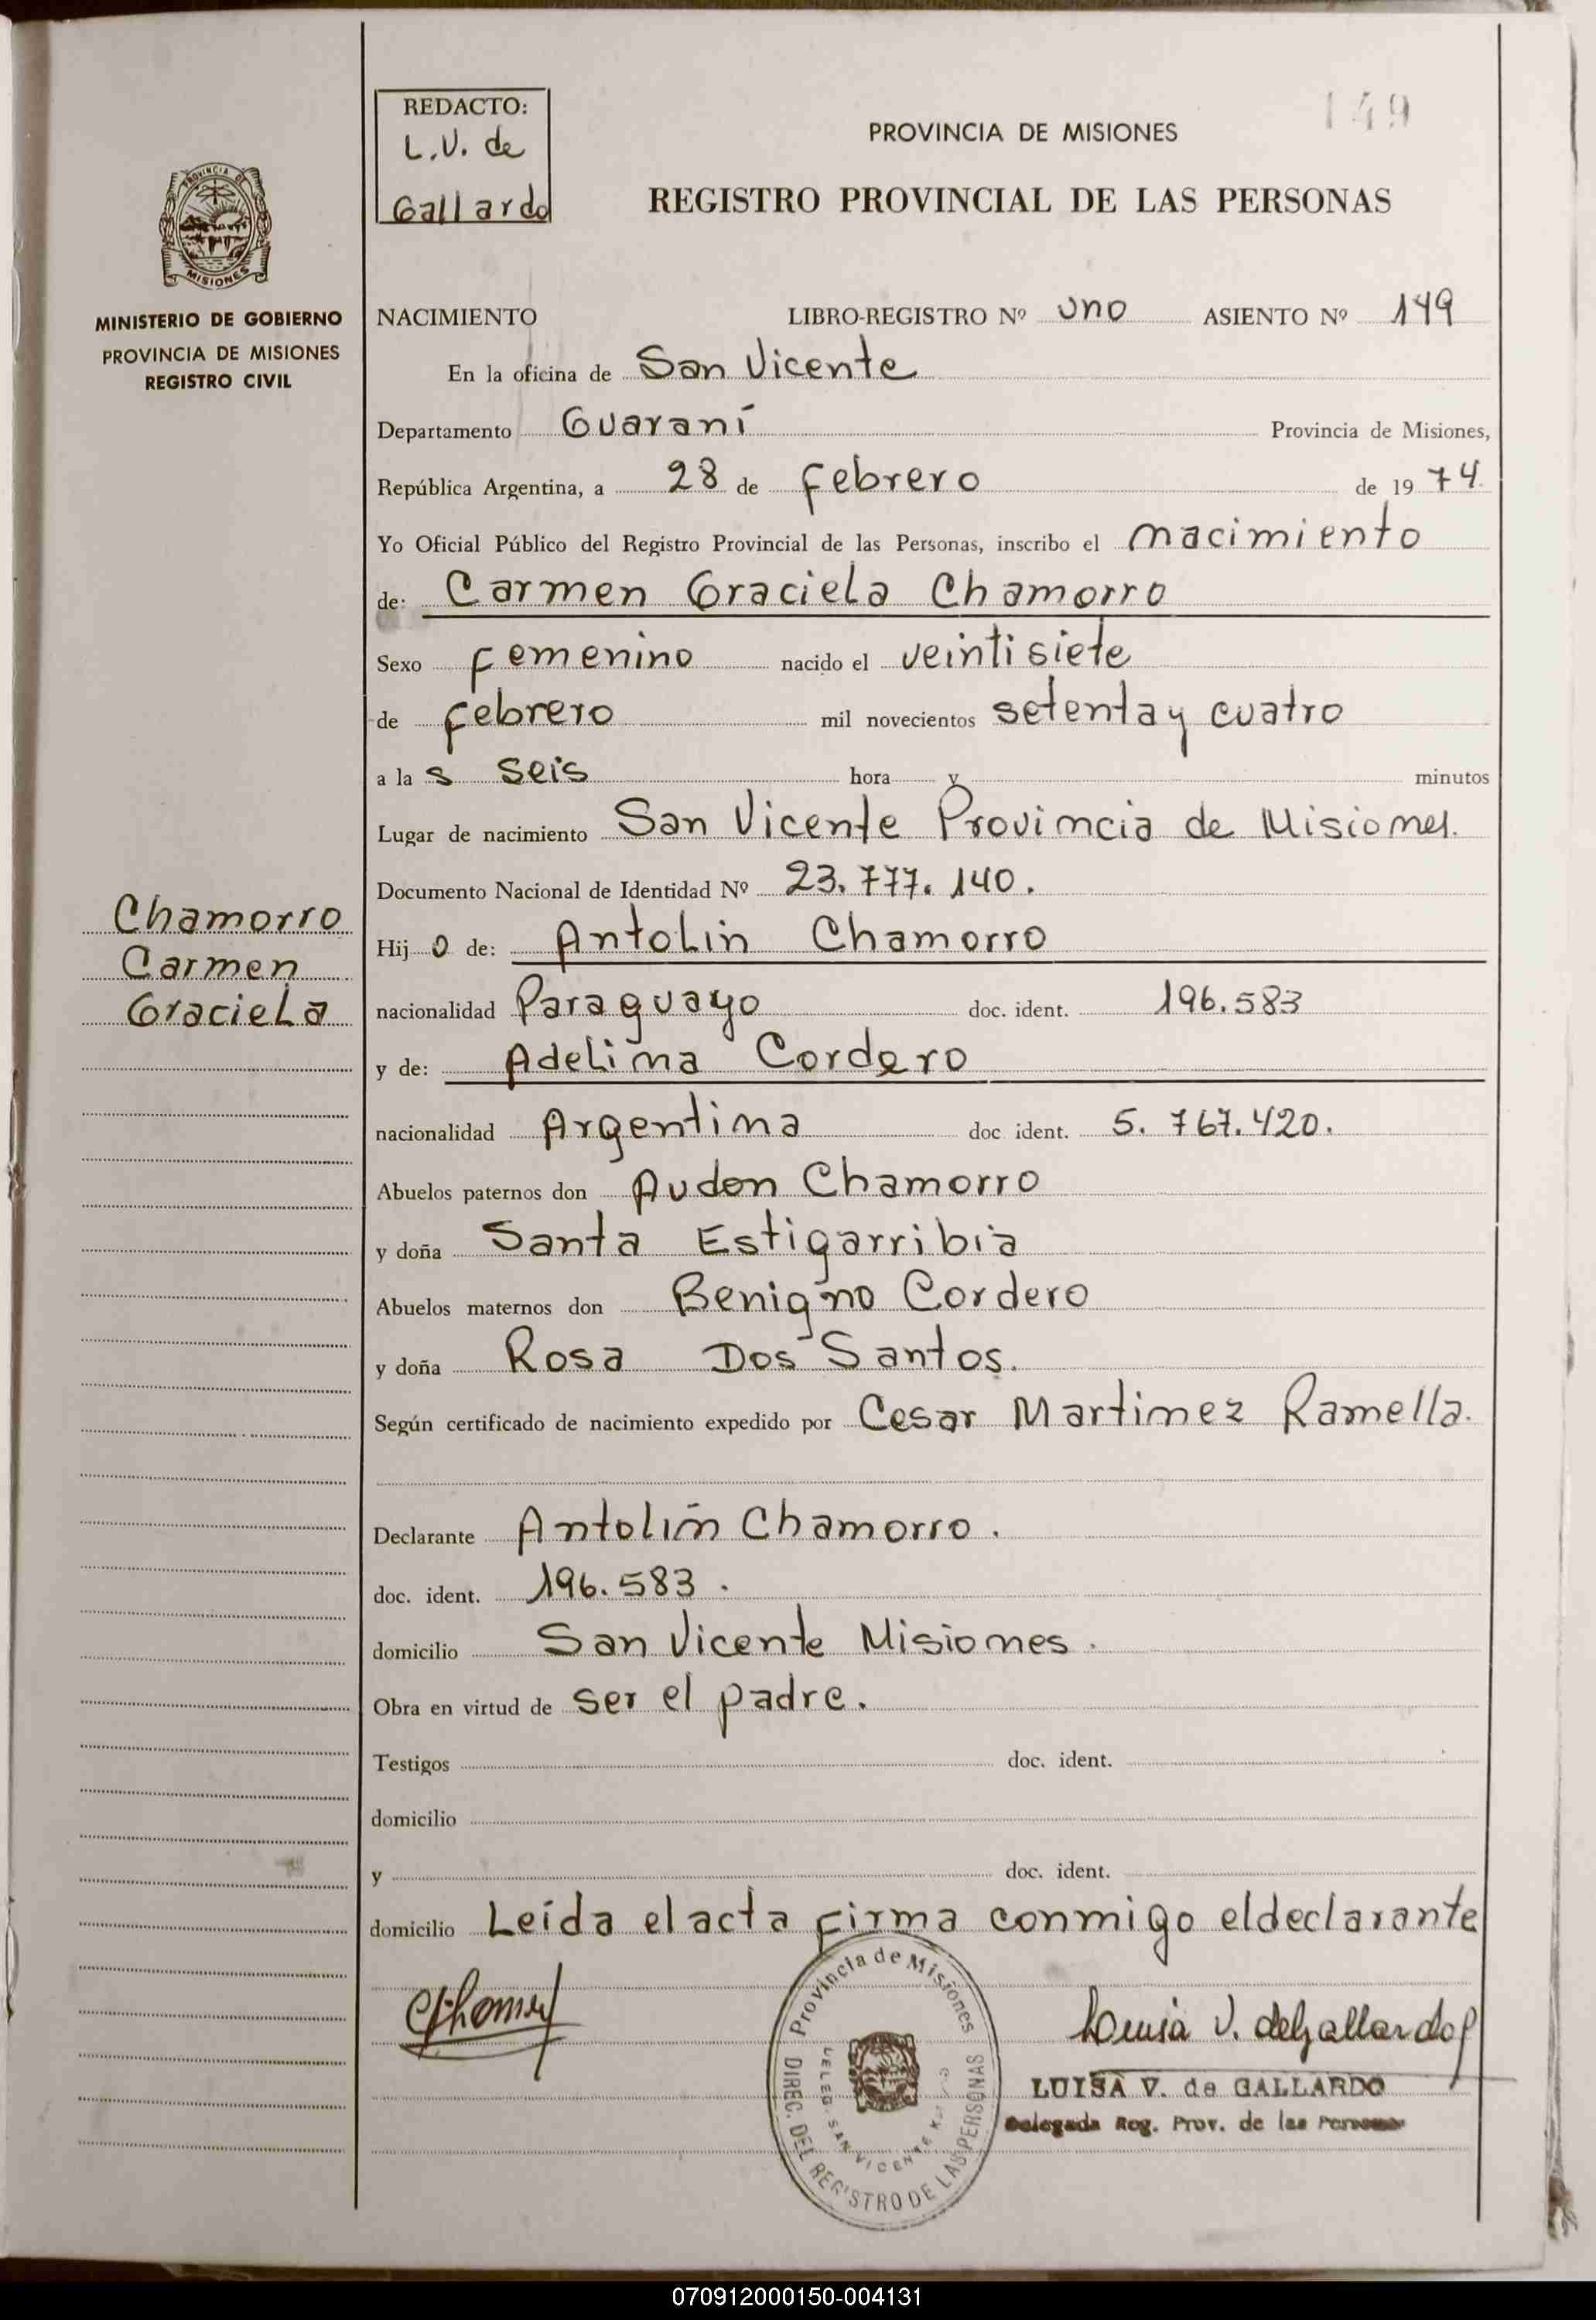 REDACTO:
L.V. de
Gallardo
149
PROVINCIA DE MISIONES
REGISTRO PROVINCIAL DE LAS PERSONAS
PROVINCIA DE
MISIONES
MINISTERIO DE GOBIERNO
PROVINCIA DE MISIONES
REGISTRO CIVIL
NACIMIENTO LIBRO-REGISTRO Nº uno ASIENTO Nº 149
En la oficina de San Vicente
Departamento Guaraní Provincia de Misiones,
República Argentina, a 28 de Febrero de 19 74.
Yo Oficial Público del Registro Provincial de las Personas, inscribo el nacimiento
de: Carmen Graciela Chamorro
Sexo Femenino nacido el veintisiete
de Febrero mil novecientos setenta y cuatro
a la s seis hora y minutos
Lugar de nacimiento San Vicente Provincia de Misiones.
Documento Nacional de Identidad Nº 23.777.140.
Chamorro
Carmen
Graciela
Hij o de: Antolin Chamorro
nacionalidad Paraguayo doc. ident. 196.583
y de: Adelina Cordero
nacionalidad Argentina doc ident. 5.767.420.
Abuelos paternos don Audon Chamorro
y doña Santa Estigarribia
Abuelos maternos don Benigno Cordero
y doña Rosa Dos Santos.
Según certificado de nacimiento expedido por Cesar Martinez Ramella.
Declarante Antolín Chamorro.
doc. ident. 196.583.
domicilio San Vicente Misiones.
Obra en virtud de ser el padre.
Testigos doc. ident.
domicilio
y doc. ident.
domicilio Leída el acta firma conmigo el declarante
Provincia de Misiones
DIREC. DEL REGISTRO DE LAS PERSONAS
DELEG. SAN VICENTE
Luisa V. de Gallardo
LUISA V. de GALLARDO
Delegada Reg. Prov. de las Personas
070912000150-004131